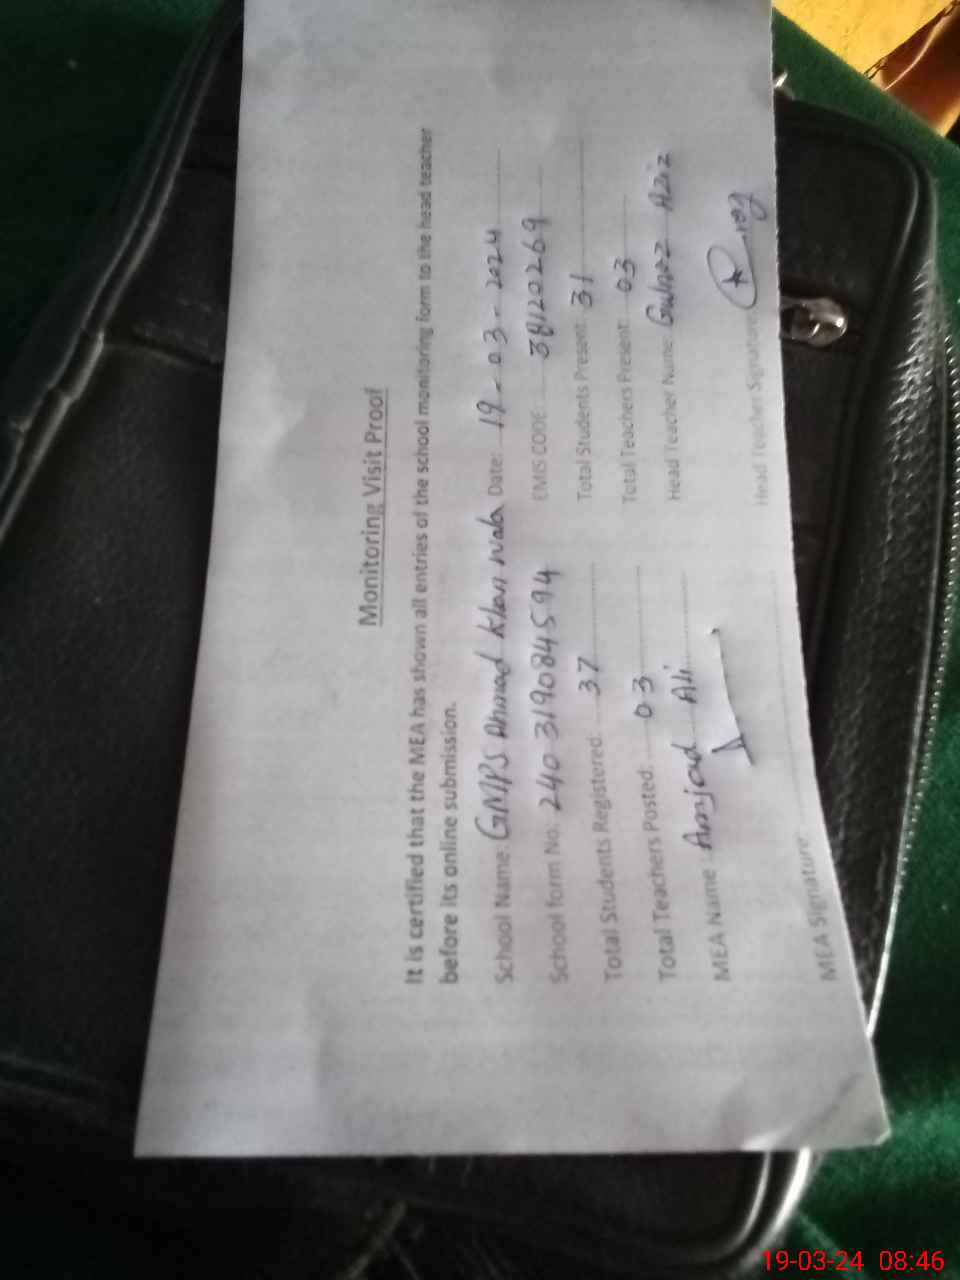 Monitoring Visit Proof
It is certified that the MEA has shown all entries of the school monitoring form to the head teacher
before its online submission.
School Name: GMPS Ahmad Khan wala Date: 19-03-2024
School form No: 240319084594 EMIS CODE 38120269
Total Students Registered: 37 Total Students Present: 31
Total Teachers Posted: 03 Total Teachers Present: 03
MEA Name: Amjad Ali Head Teacher Name: Gulnaz Aziz
MEA Signature: Head Teacher Signature:
19-03-24 08:46